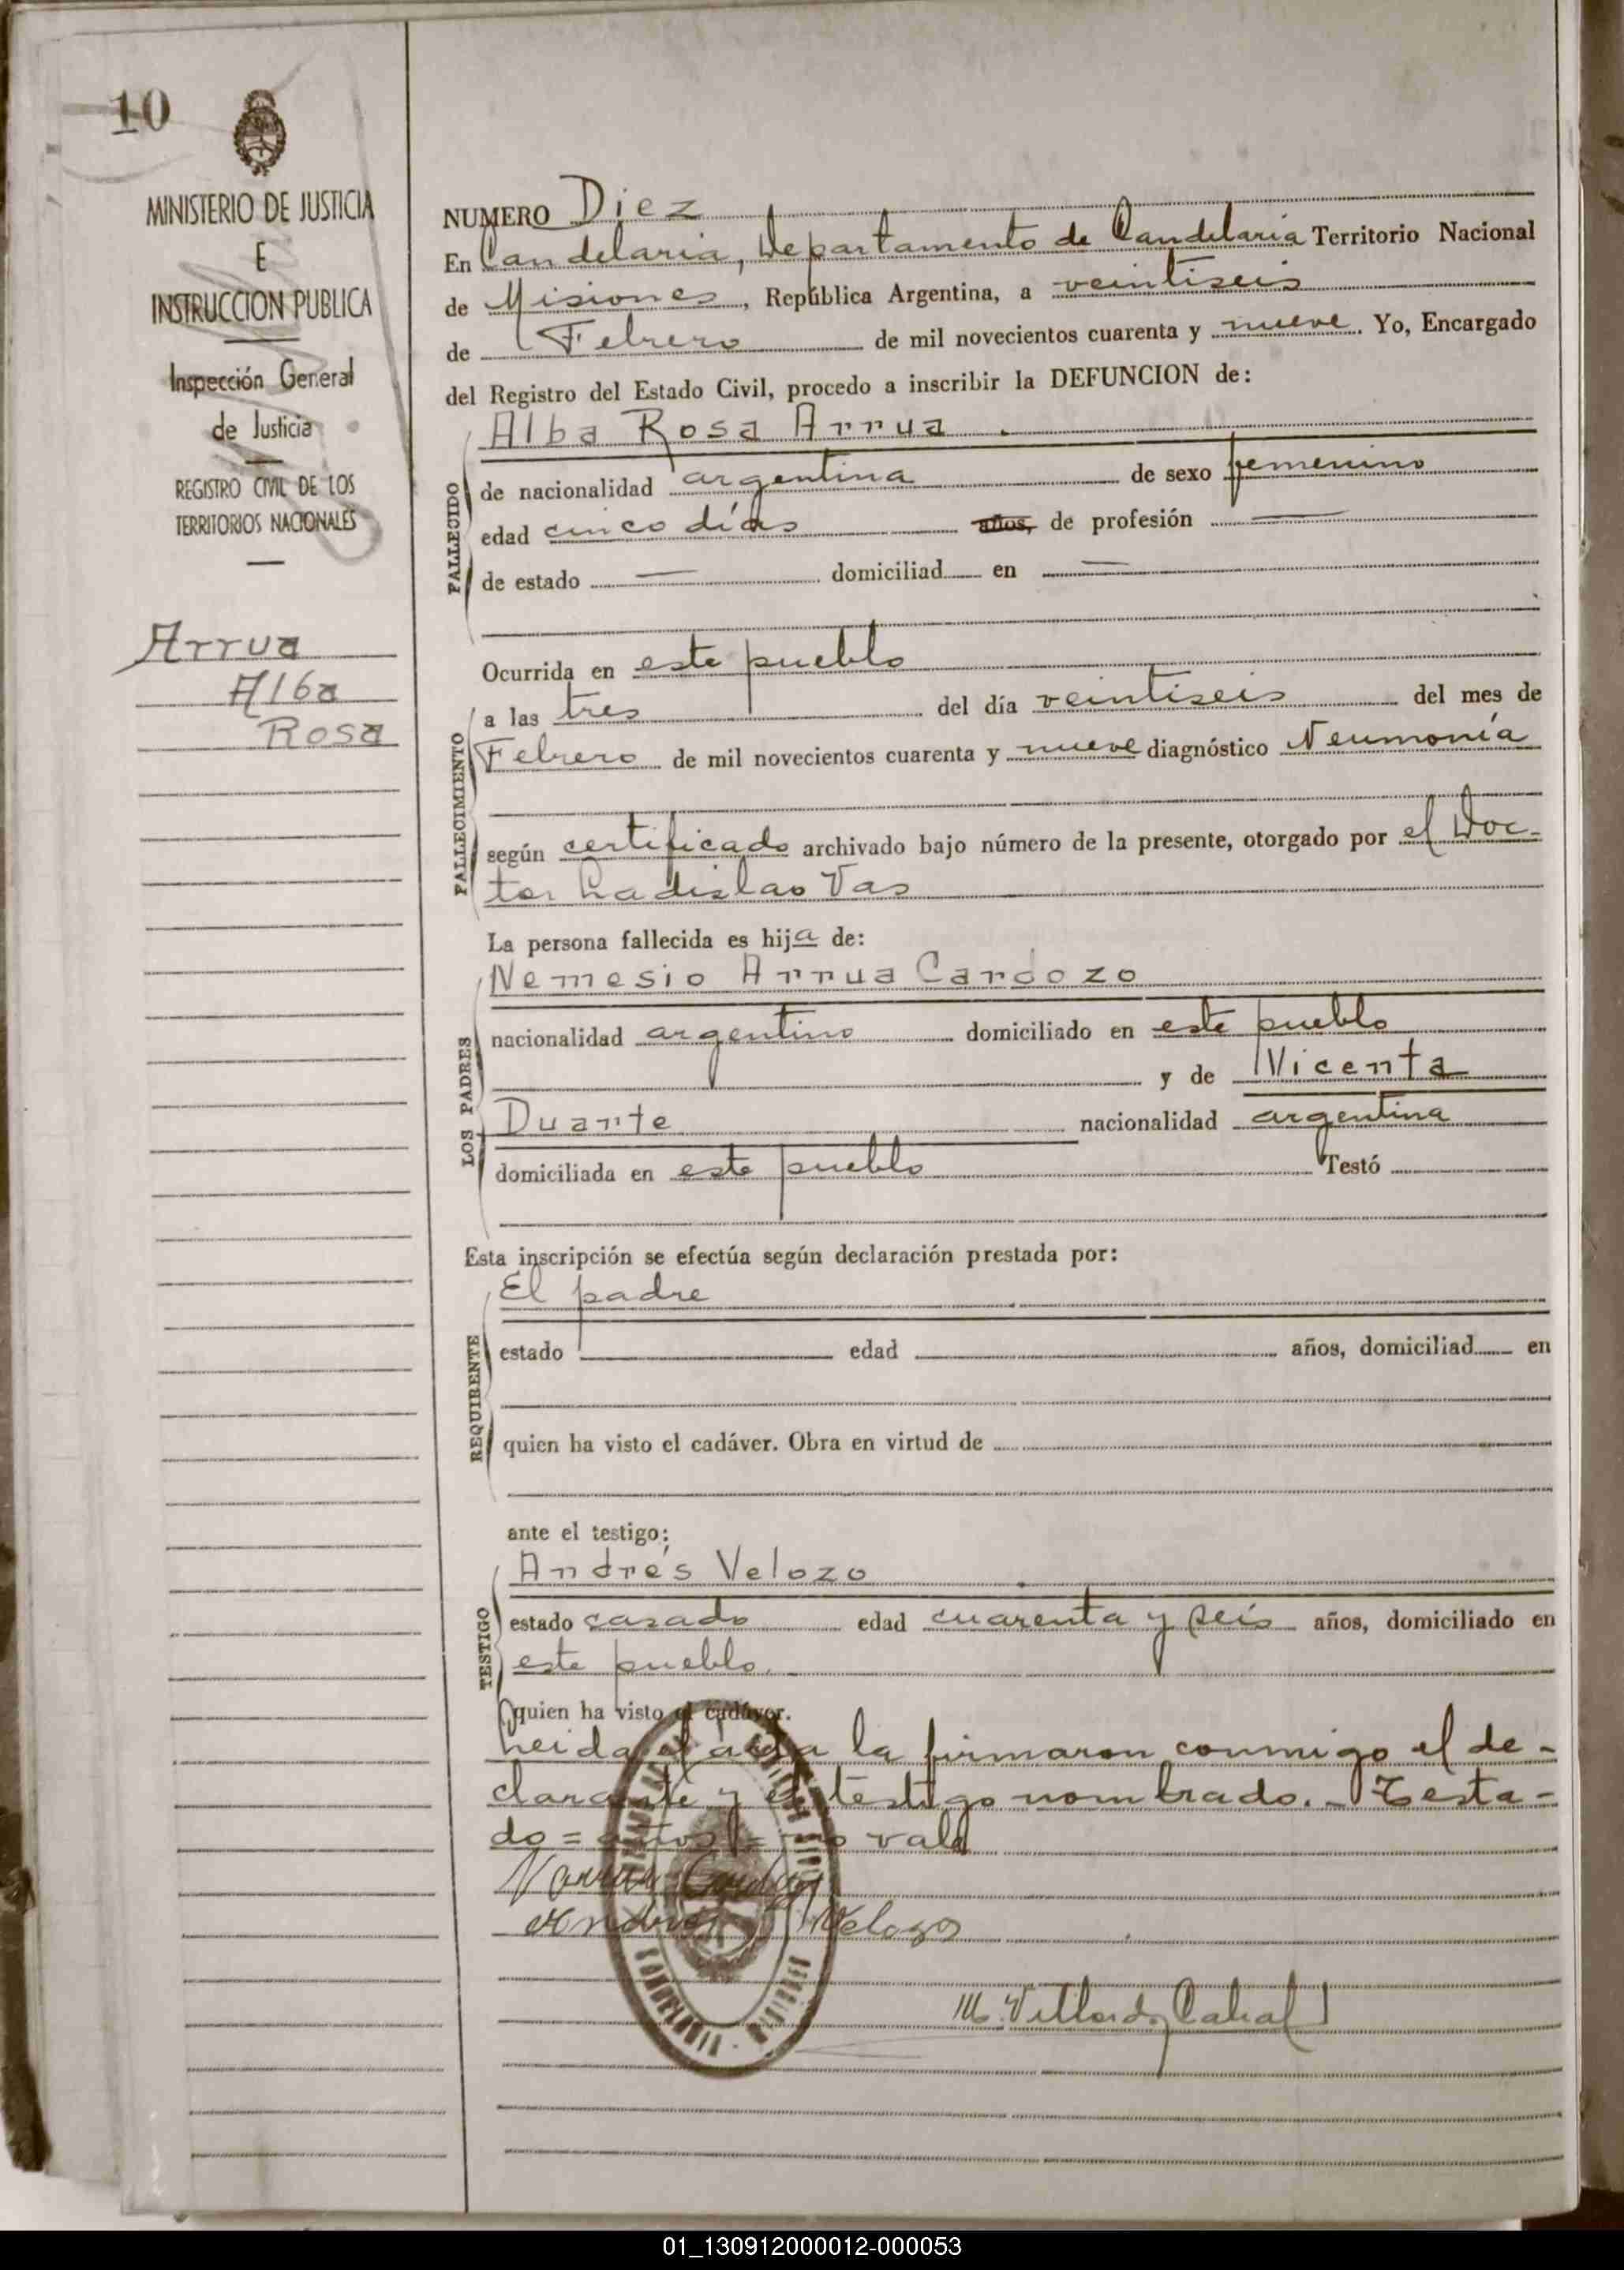 10
MINISTERIO DE JUSTICIA
E
INSTRUCCION PUBLICA
Inspección General
de Justicia
REGISTRO CIVIL DE LOS
TERRITORIOS NACIONALES
Arrua
Alba
Rosa
NUMERO Diez
En Candelaria, Departamento de Candelaria Territorio Nacional
de Misiones, República Argentina, a veintiseis
de Febrero de mil novecientos cuarenta y nueve. Yo, Encargado
del Registro del Estado Civil, procedo a inscribir la DEFUNCION de:
Alba Rosa Arrua
FALLECIDO
de nacionalidad argentina de sexo femenino
edad cinco días años, de profesión —
de estado — domiciliad en —
Ocurrida en este pueblo
FALLECIMIENTO
a las tres del día veintiseis del mes de
Febrero de mil novecientos cuarenta y nueve diagnóstico Neumonía
según certificado archivado bajo número de la presente, otorgado por el Doc-
tor Ladislao Vas
La persona fallecida es hija de:
Nemesio Arrua Cardozo
LOS PADRES
nacionalidad argentino domiciliado en este pueblo
y de Vicenta
Duarte nacionalidad argentina
domiciliada en este pueblo Testó
Esta inscripción se efectúa según declaración prestada por:
El padre
REQUIRENTE
estado edad años, domiciliad en
quien ha visto el cadáver. Obra en virtud de
ante el testigo:
Andrés Velozo
TESTIGO
estado casado edad cuarenta y seis años, domiciliado en
este pueblo
quien ha visto el cadáver.
Leida el acta la firmaron conmigo el de-
clarante y el testigo nombrado.- Testa-
do = años = no vale
Andres Velozo
01_130912000012-000053